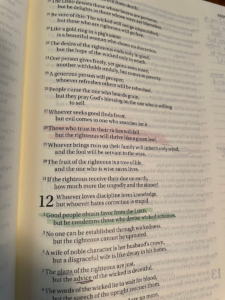 The LORD detests those whose hearts are perverse,
but he delights in those whose ways are blameless.
21 Be sure of this: The wicked will not go unpunished,
but those who are righteous will go free.
22 Like a gold ring in a pig's snout
is a beautiful woman who shows no discretion.
23 The desire of the righteous ends only in good,
but the hope of the wicked only in wrath.
24 One person gives freely, yet gains even more;
another withholds unduly, but comes to poverty.
25 A generous person will prosper;
whoever refreshes others will be refreshed.
26 People curse the one who hoards grain,
but they pray God's blessing on the one who is willing
to sell.
27 Whoever seeks good finds favor,
but evil comes to one who searches for it.
28 Those who trust in their riches will fall,
but the righteous will thrive like a green leaf.
29 Whoever brings ruin on their family will inherit only wind,
and the fool will be servant to the wise.
30 The fruit of the righteous is a tree of life,
and the one who is wise saves lives.
31 If the righteous receive their due on earth,
how much more the ungodly and the sinner!
12 Whoever loves discipline loves knowledge,
but whoever hates correction is stupid.
2 Good people obtain favor from the LORD,
but he condemns those who devise wicked schemes.
3 No one can be established through wickedness,
but the righteous cannot be uprooted.
4 A wife of noble character is her husband's crown,
but a disgraceful wife is like decay in his bones.
5 The plans of the righteous are just,
but the advice of the wicked is deceitful.
6 The words of the wicked lie in wait for blood,
but the speech of the upright rescues them.